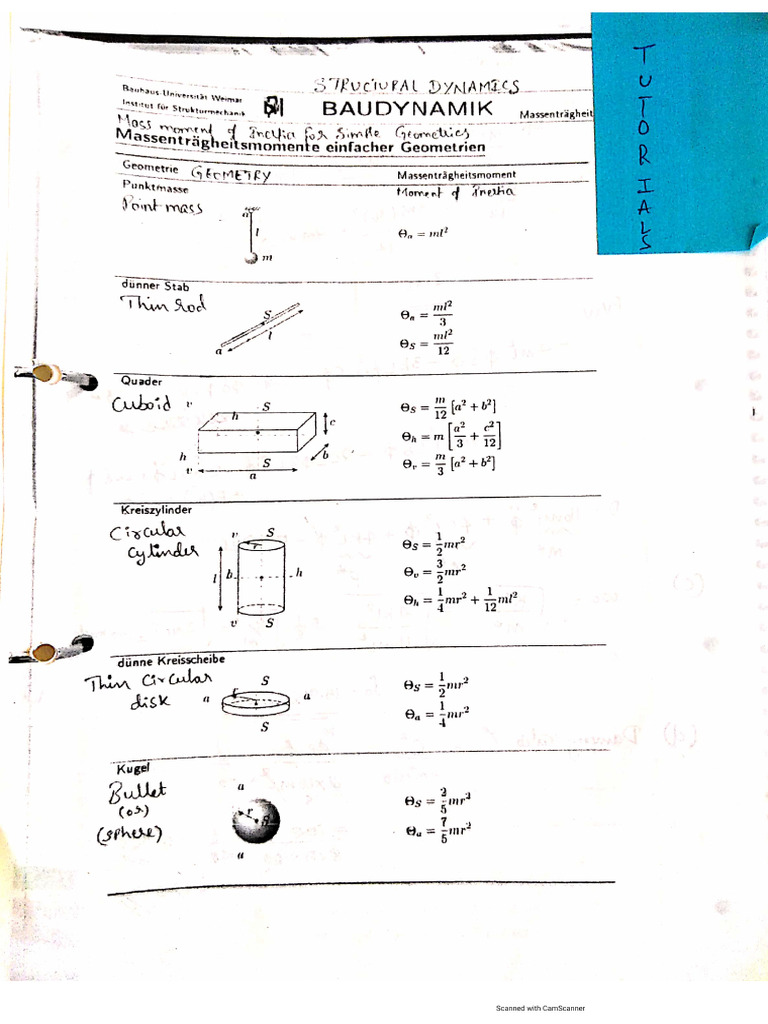 TUTORIALS
STRUCTURAL DYNAMICS
Bauhaus-Universität Weimar
Institut für Strukturmechanik
BAUDYNAMIK
Massenträgheit
Mass moment of Inertia for Simple Geometries
Massenträgheitsmomente einfacher Geometrien
Geometrie GEOMETRY Massenträgheitsmoment
Punktmasse Moment of Inertia
Point mass
a
l
m
Θa = ml²
dünner Stab
Thin rod
S
l
a
Θa = ml²/3
ΘS = ml²/12
Quader
Cuboid
v S
h
c
h
b
v S
a
ΘS = m/12 [a² + b²]
Θh = m [a²/3 + c²/12]
Θv = m/3 [a² + b²]
Kreiszylinder
Circular
cylinder
v S
r
l h h
v S
ΘS = 1/2 mr²
Θv = 3/2 mr²
Θh = 1/4 mr² + 1/12 ml²
dünne Kreisscheibe
Thin Circular
disk
S
r
a a
S
ΘS = 1/2 mr²
Θa = 1/4 mr²
Kugel
Bullet
(or)
(sphere)
a
r
S
a
ΘS = 2/5 mr²
Θa = 7/5 mr²
1
Scanned with CamScanner